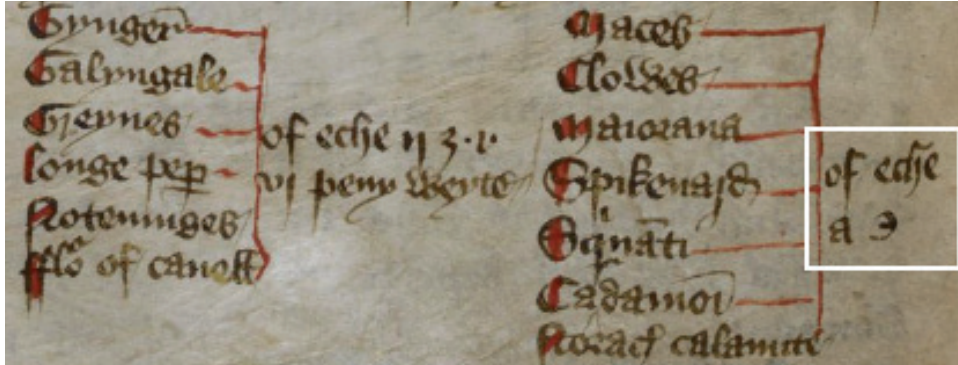 Gynger
Galyngale
Greynes
longe pep
Notemuges
fflo of canell
of eche ij ʒ . v
vj peny weyte
Maces
Clowes
Maiorana
Spikenard
Squināti
Cadamoī
Storac calamite
of eche
a ℈